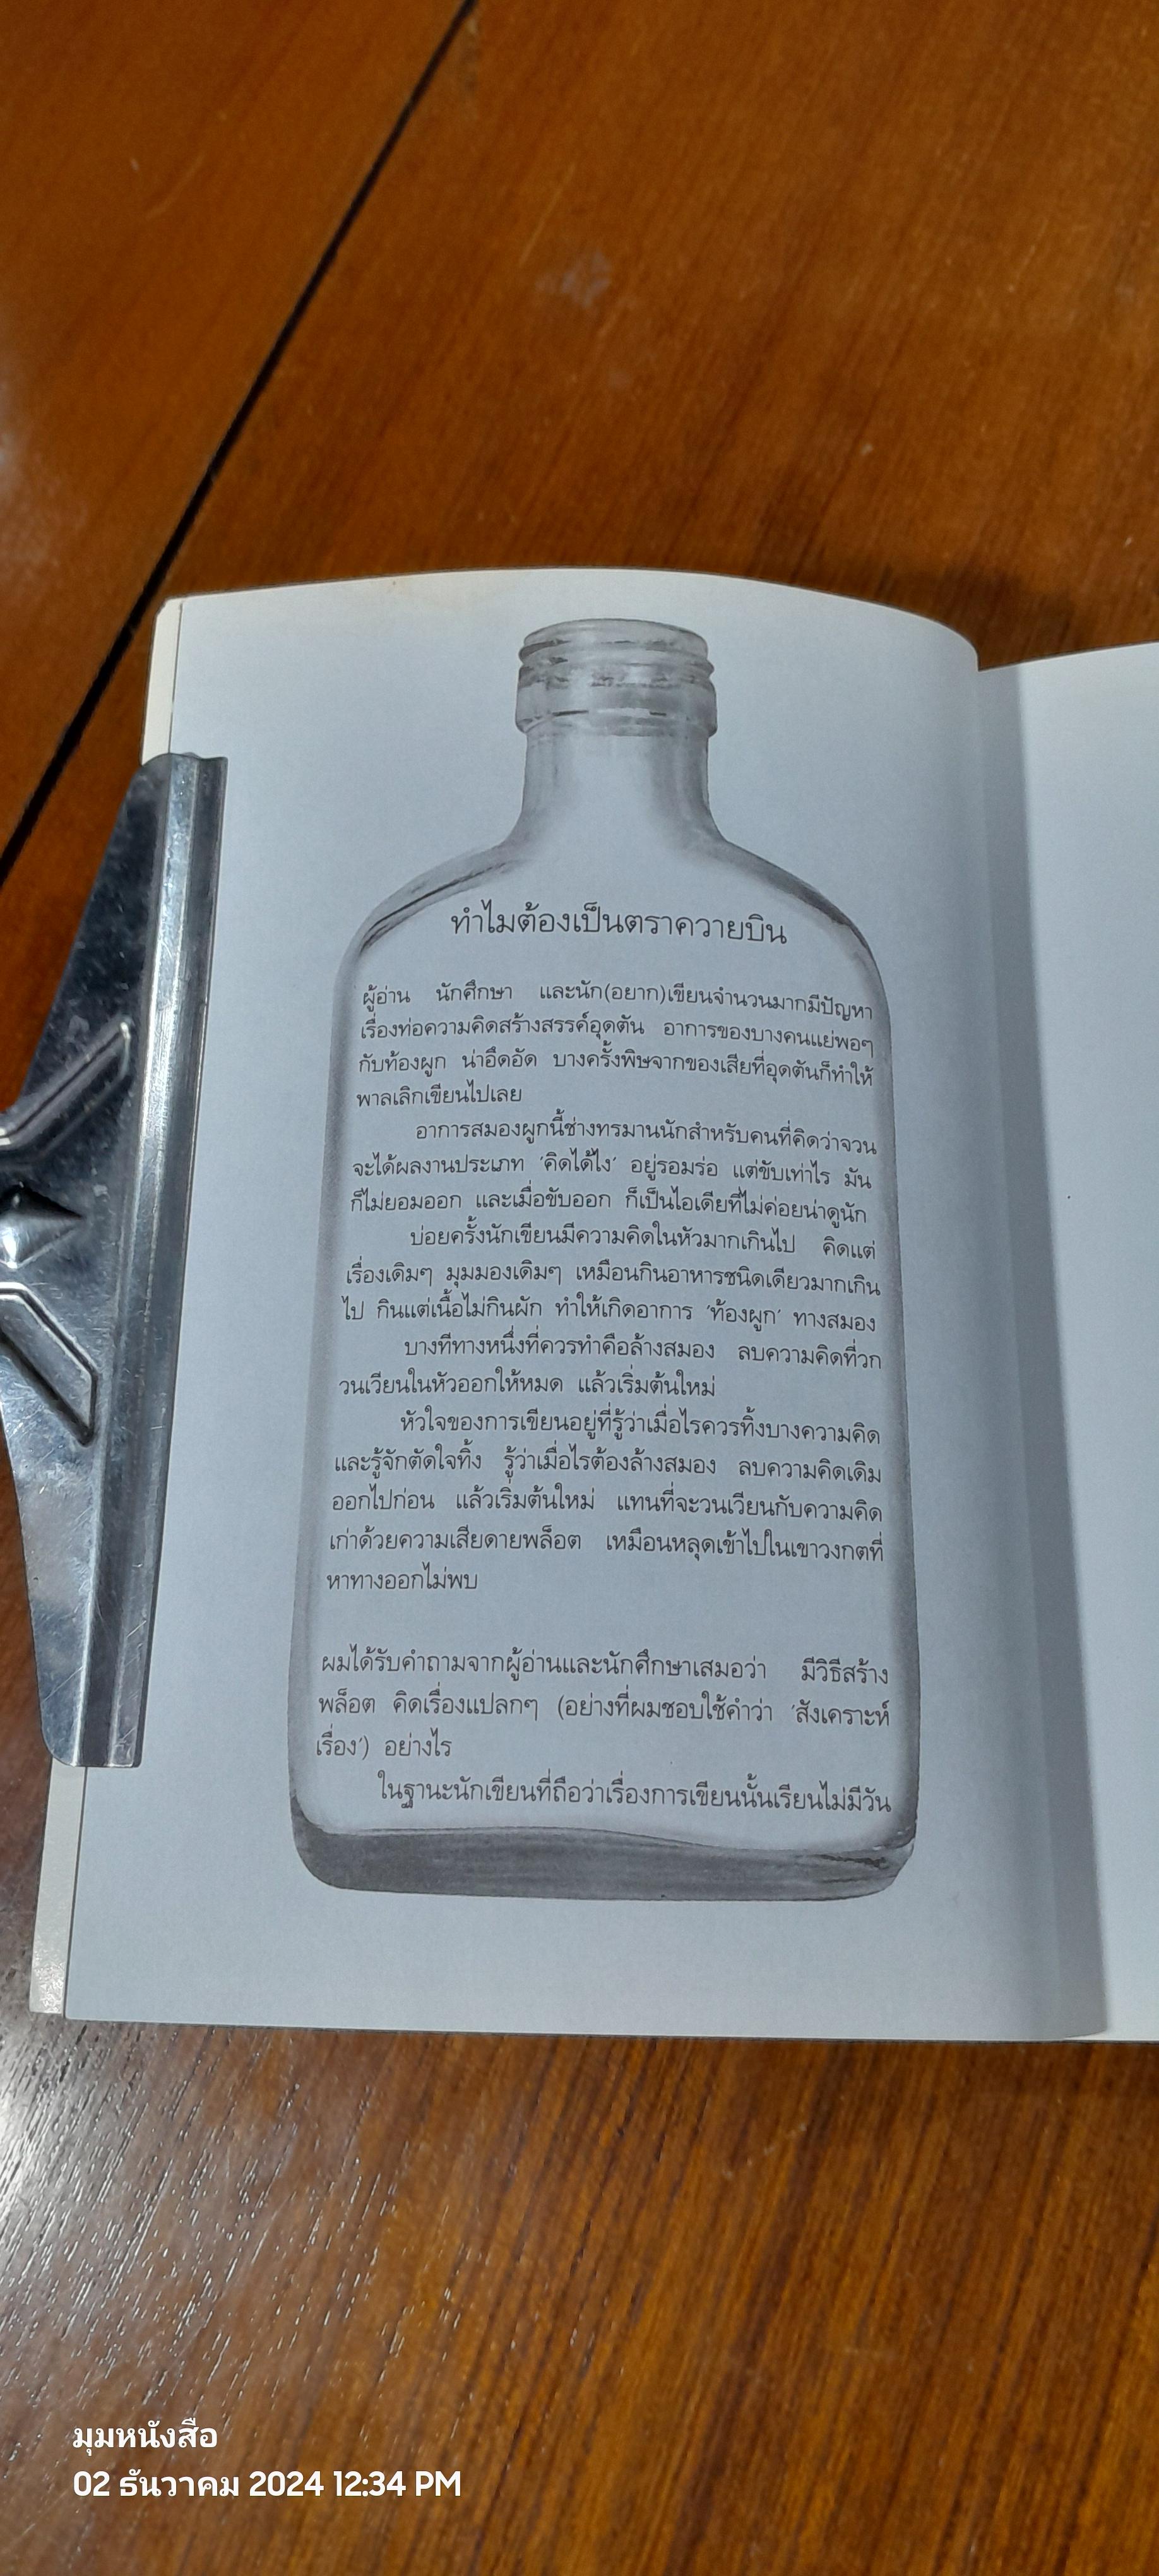 ทำไมต้องเป็นตราควายบิน
ผู้อ่าน นักศึกษา และนัก(อยาก)เขียนจำนวนมากมีปัญหา
เรื่องท่อความคิดสร้างสรรค์อุดตัน อาการของบางคนแย่พอๆ
กับท้องผูก น่าอึดอัด บางครั้งพิษจากของเสียที่อุดตันก็ทำให้
พาลเลิกเขียนไปเลย
อาการสมองผูกนี้ช่างทรมานนักสำหรับคนที่คิดว่าจวน
จะได้ผลงานประเภท 'คิดได้ไง' อยู่รอมร่อ แต่ขับเท่าไร มัน
ก็ไม่ยอมออก และเมื่อขับออก ก็เป็นไอเดียที่ไม่ค่อยน่าดูนัก
บ่อยครั้งนักเขียนมีความคิดในหัวมากเกินไป คิดแต่
เรื่องเดิมๆ มุมมองเดิมๆ เหมือนกินอาหารชนิดเดียวมากเกิน
ไป กินแต่เนื้อไม่กินผัก ทำให้เกิดอาการ 'ท้องผูก' ทางสมอง
บางทีทางหนึ่งที่ควรทำคือล้างสมอง ลบความคิดที่วก
วนเวียนในหัวออกให้หมด แล้วเริ่มต้นใหม่
หัวใจของการเขียนอยู่ที่รู้ว่าเมื่อไรควรทิ้งบางความคิด
และรู้จักตัดใจทิ้ง รู้ว่าเมื่อไรต้องล้างสมอง ลบความคิดเดิม
ออกไปก่อน แล้วเริ่มต้นใหม่ แทนที่จะวนเวียนกับความคิด
เก่าด้วยความเสียดายพล็อต เหมือนหลุดเข้าไปในเขาวงกตที่
หาทางออกไม่พบ
ผมได้รับคำถามจากผู้อ่านและนักศึกษาเสมอว่า มีวิธีสร้าง
พล็อต คิดเรื่องแปลกๆ (อย่างที่ผมชอบใช้คำว่า 'สังเคราะห์
เรื่อง') อย่างไร
ในฐานะนักเขียนที่ถือว่าเรื่องการเขียนนั้นเรียนไม่มีวัน
มุมหนังสือ
02 ธันวาคม 2024 12:34 PM